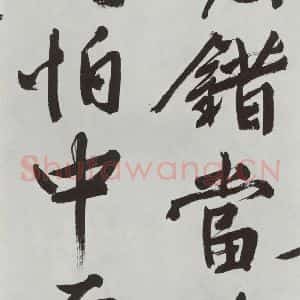 錯當
怕中
Shufawang.CN